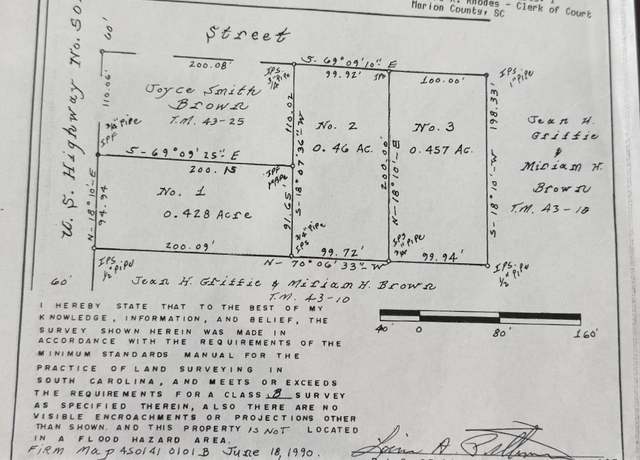 Rhodes - Clerk of Court
Marion County, SC
Street
U.S. Highway No. 501
60'
200.08'
S-69°09'10"E
99.92'
100.00'
IPS
1" Pipe
110.06'
Joyce Smith
Brown
T.M. 43-25
110.02
S-18°07'36"W
No. 2
0.46 Ac.
200.00'
N-18°10'-E
No. 3
0.457 Ac.
198.33'
S-18°10'-W
Jean H.
Griffie
&
Miriam H.
Brown
T.M. 43-10
IPF
S-69°09'25"E
200.15
IPF
N-18°10-E
94.94
No. 1
0.428 Acre
91.65'
3/4" Pipe
IPS
200.09'
99.72'
N-70°06'33"-W
99.94'
IPS
1/2" Pipe
IPS
1/2" Pipe
60'
Jean H. Griffie & Miriam H. Brown
T.M. 43-10
40' 0 80' 160'
I HEREBY STATE THAT TO THE BEST OF MY
KNOWLEDGE, INFORMATION, AND BELIEF, THE
SURVEY SHOWN HEREIN WAS MADE IN
ACCORDANCE WITH THE REQUIREMENTS OF THE
MINIMUM STANDARDS MANUAL FOR THE
PRACTICE OF LAND SURVEYING IN
SOUTH CAROLINA, AND MEETS OR EXCEEDS
THE REQUIREMENTS FOR A CLASS B SURVEY
AS SPECIFIED THEREIN, ALSO THERE ARE NO
VISIBLE ENCROACHMENTS OR PROJECTIONS OTHER
THAN SHOWN. AND THIS PROPERTY IS NOT LOCATED
IN A FLOOD HAZARD AREA.
FIRM Map 450141 0101 B June 18, 1990.